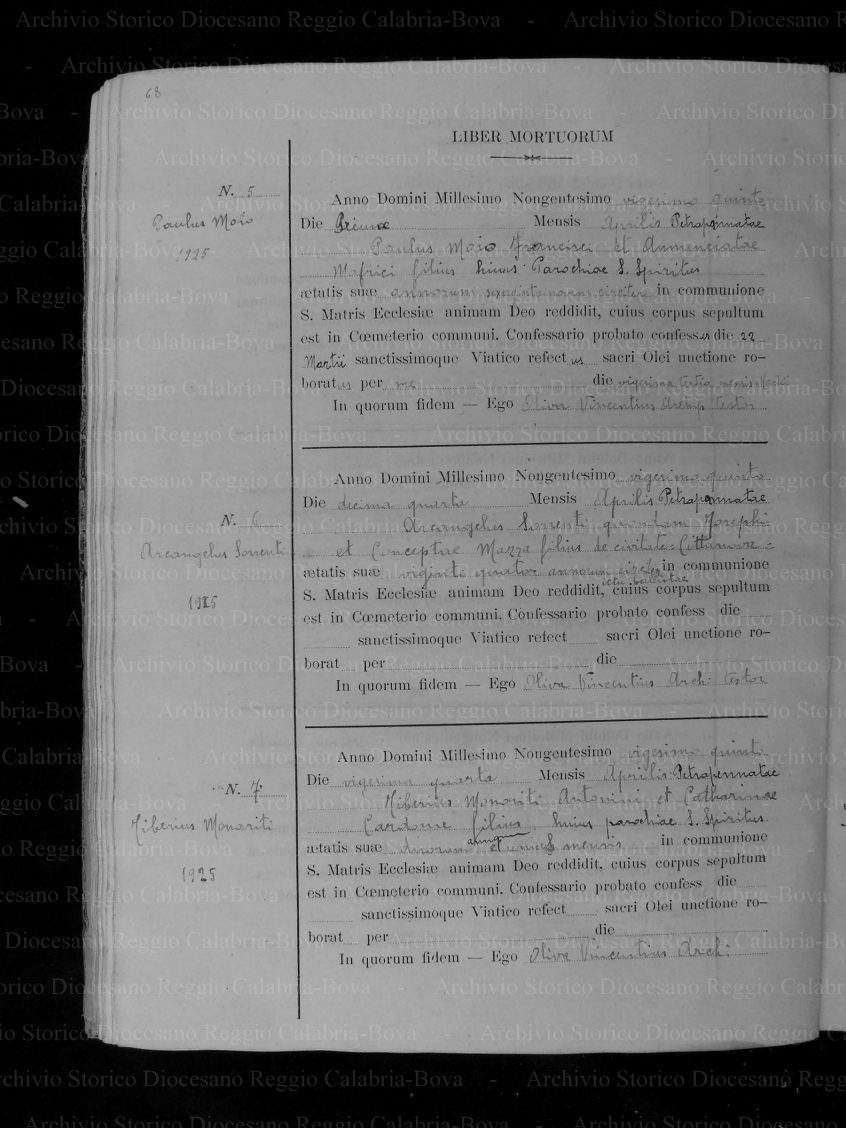 68
LIBER MORTUORUM
N. 5
Paulus Moio
1925
Anno Domini Millesimo Nongentesimo vigesimo quinto
Die Prima Mensis Aprilis Petrapennatae
Paulus Moio Francisci et Annunciatae
Mafrici filius huius Parochiae S. Spiritus
ætatis suæ annorum sexaginta novem circiter in communione
S. Matris Ecclesiæ animam Deo reddidit, cuius corpus sepultum
est in Cœmeterio communi. Confessario probato confessus die 22
Martii sanctissimoque Viatico refectus sacri Olei unctione ro-
boratus per me die vigesima tertia mensis Martii
In quorum fidem — Ego Oliva Vincentius Archip. testor
N. 6
Arcangelus Sorrenti
1925
Anno Domini Millesimo Nongentesimo vigesimo quinto
Die decima quarta Mensis Aprilis Petrapennatae
Arcangelus Sorrenti quondam Josephi
et Conceptae Mazza filius de civitate Cittanova =
ætatis suæ viginti quatuor annorum circiter in communione
ictu
S. Matris Ecclesiæ animam Deo reddidit, cuius corpus sepultum
est in Cœmeterio communi. Confessario probato confess die
sanctissimoque Viatico refect sacri Olei unctione ro-
borat per die
In quorum fidem — Ego Oliva Vincentius Arch. testor
N. 7
Tiberius Monoriti
1925
Anno Domini Millesimo Nongentesimo vigesimo quinto
Die vigesima quarta Mensis Aprilis Petrapennatae
Tiberius Monoriti Antonini et Catharinae
Cardone filius huius parochiae S. Spiritus
ætatis suæ duorum annorum et unius mensis in communione
S. Matris Ecclesiæ animam Deo reddidit, cuius corpus sepultum
est in Cœmeterio communi. Confessario probato confess die
sanctissimoque Viatico refect sacri Olei unctione ro-
borat per die
In quorum fidem — Ego Oliva Vincentius Arch.